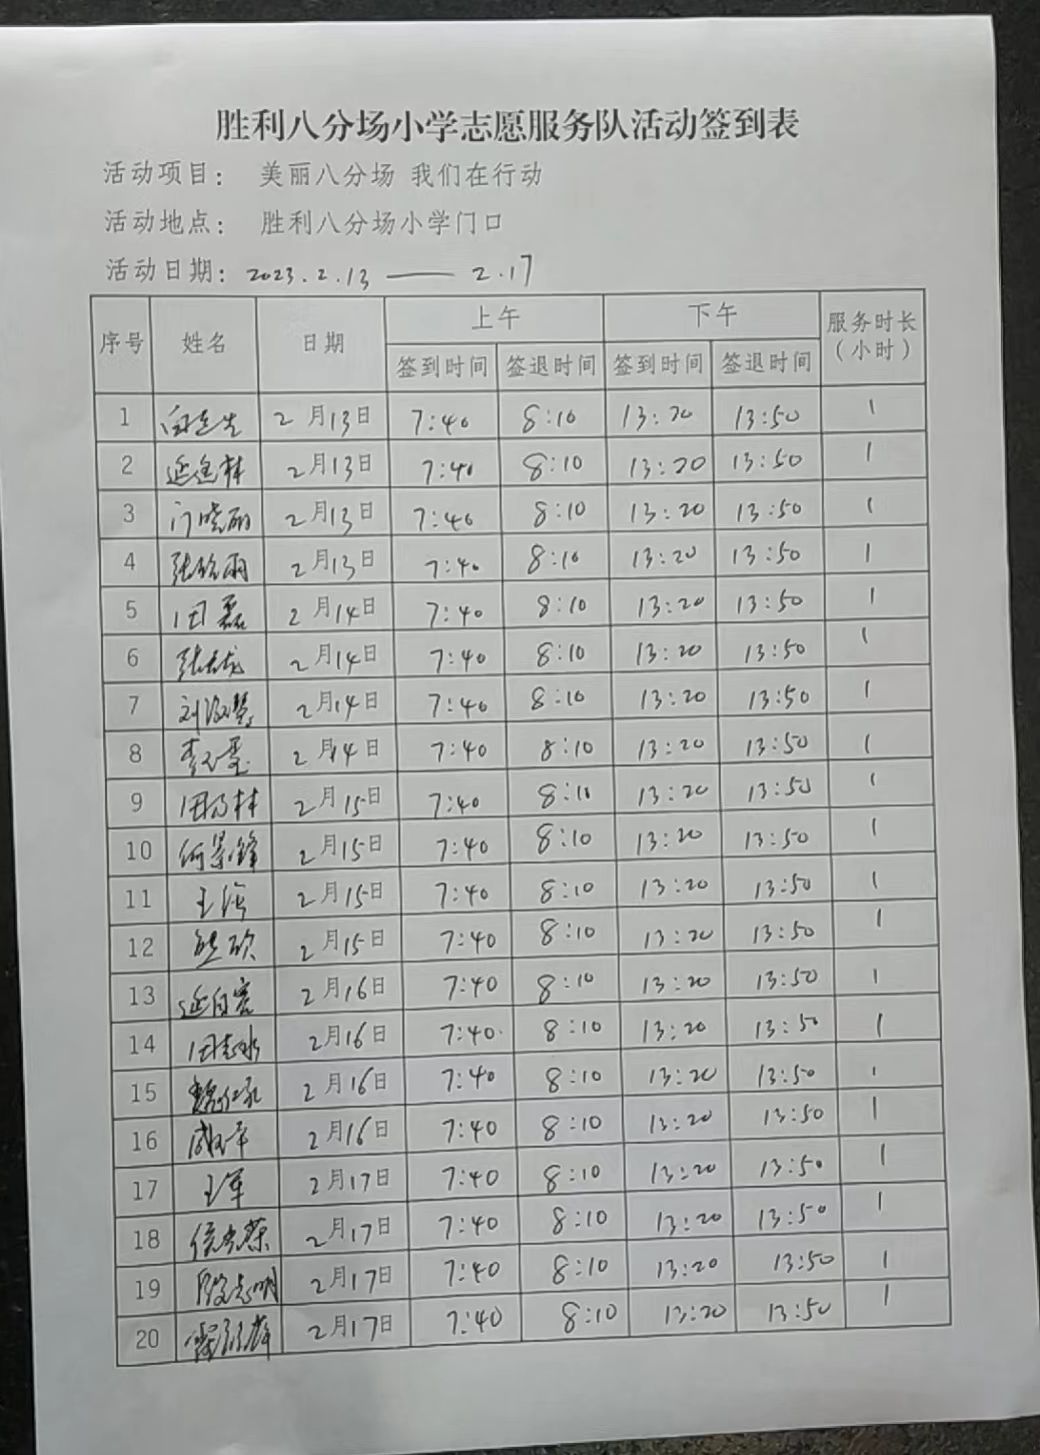 胜利八分场小学志愿服务队活动签到表
活动项目： 美丽八分场 我们在行动
活动地点： 胜利八分场小学门口
活动日期：2023.2.13 —— 2.17
序号 姓名 日期 上午 下午 服务时长（小时）
签到时间 签退时间 签到时间 签退时间
1 2月13日 7:40 8:10 13:20 13:50 1
2 2月13日 7:40 8:10 13:20 13:50 1
3 门晓丽 2月13日 7:40 8:10 13:20 13:50 1
4 2月13日 7:40 8:10 13:20 13:50 1
5 田磊 2月14日 7:40 8:10 13:20 13:50 1
6 2月14日 7:40 8:10 13:20 13:50 1
7 2月14日 7:40 8:10 13:20 13:50 1
8 2月14日 7:40 8:10 13:20 13:50 1
9 2月15日 7:40 8:10 13:20 13:50 1
10 何景锋 2月15日 7:40 8:10 13:20 13:50 1
11 2月15日 7:40 8:10 13:20 13:50 1
12 2月15日 7:40 8:10 13:20 13:50 1
13 2月16日 7:40 8:10 13:20 13:50 1
14 2月16日 7:40 8:10 13:20 13:50 1
15 2月16日 7:40 8:10 13:20 13:50 1
16 2月16日 7:40 8:10 13:20 13:50 1
17 王军 2月17日 7:40 8:10 13:20 13:50 1
18 2月17日 7:40 8:10 13:20 13:50 1
19 殷志明 2月17日 7:40 8:10 13:20 13:50 1
20 2月17日 7:40 8:10 13:20 13:50 1